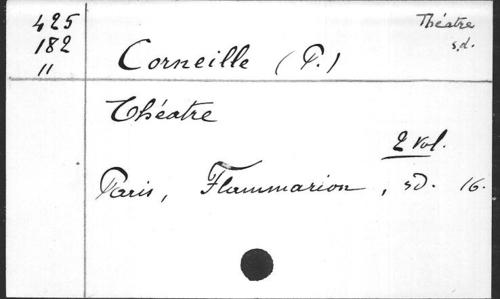 425
182
11
Théatre
s.d.
Corneille (P.)
Théatre
2 vol.
Paris, Flammarion, sd. 16.